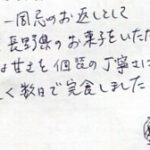 一周忌のお返しとして
長野県のお菓子をいただ
な甘さを個包の丁寧さに
く数日で完食しました